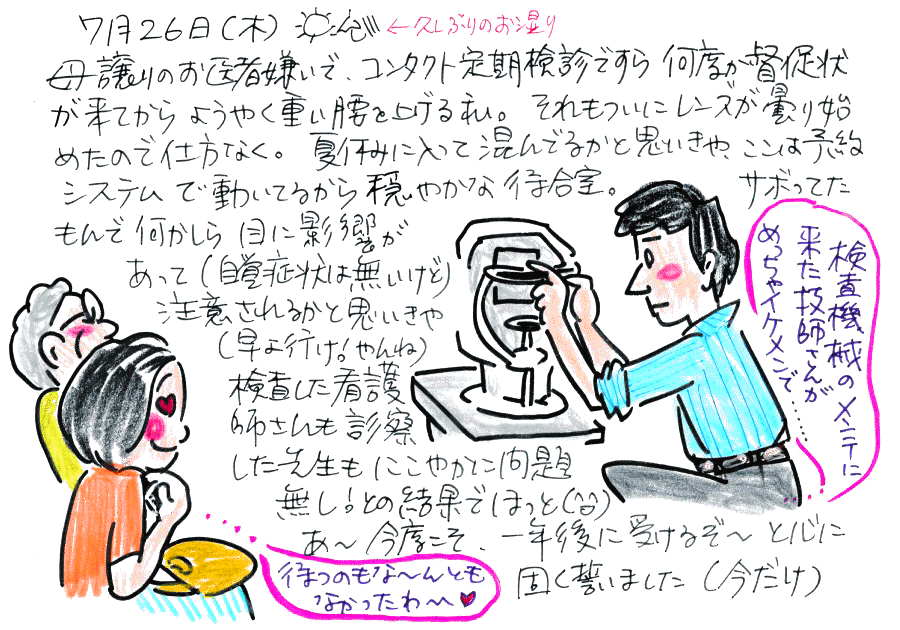 7月26日(木)
←久しぶりのお湿り
母譲りのお医者嫌いで、コンタクト定期検診ですら何度か督促状
が来てからようやく重い腰を上げる私。それもついにレンズが曇り始
めたので仕方なく。夏休みに入って混んでるかと思いきや、ここは予約
システムで動いてるから穏やかな待合室。サボってた
もんで何かしら目に影響が
あって(自覚症状は無いけど)
注意されるかと思いきや
(早よ行け!やんね)
検査した看護
師さんも診察
した先生もにこやかに問題
無し!との結果でほっと(^^)
あ〜今度こそ、一年後に受けるぞ〜と心に
固く誓いました(今だけ)
検査機械のメンテに
来た技師さんが
めっちゃイケメンで……
待つのもな〜んとも
なかったわ〜♥